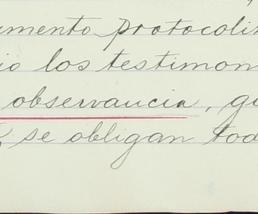 umento protocoliz
io los testimon
observancia, qu
, se obligan tod